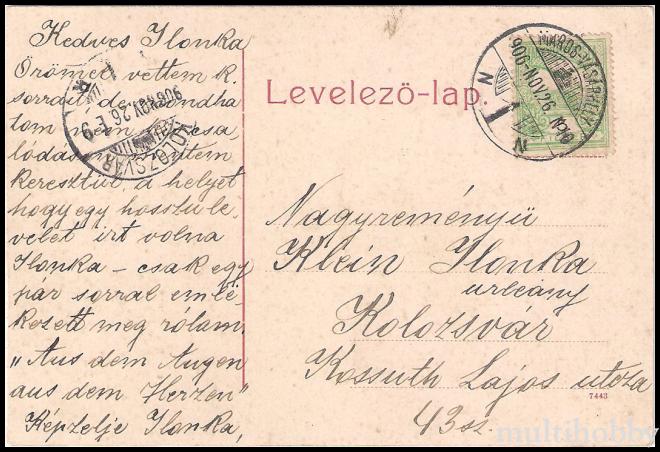 Kedves Ilonka
Örömel vettem k.
sorait de mondha
tom nem kis csa
lódáson mentem
keresztül, a helyet
hogy egy hosszu le-
velet irt volna
Ilonka – csak egy
par sorral emlé-
kezett meg rólam.
„Aus dem Augen
aus dem Herzen"
Képzelje Ilonka,
KOLOZSVÁR
906 NOV. 26 E 9
Levelező-lap.
MAROS-VÁSÁRHELY
906 NOV 26
N 1 N
Nagyreményü
Klein Ilonka
urleany
Kolozsvár
Kossuth Lajos utcza
43 sz
7443
multihobby